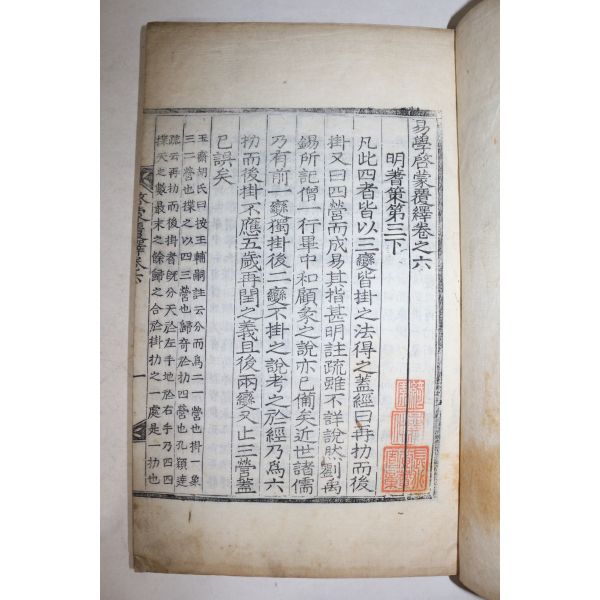 易學啓蒙覆繹卷之六
明蓍策第三下
凡此四者皆以三變皆掛之法得之蓋經曰再扐而後
掛又曰四營而成易其指甚明註疏雖不詳說然劉禹
錫所記僧一行畢中和顧彖之說亦已備矣近世諸儒
乃有前一變獨掛後二變不掛之說考之於經乃爲六
扐而後掛不應五歲再閏之義且後兩變又止三營蓋
已誤矣
玉齋胡氏曰按王輔嗣註云分而爲二一營也掛一象
三二營也揲之以四三營也歸奇於扐四營也孔穎達
疏云再扐而後掛者旣分天於左手地於右手乃四四
揲天之數最末之餘歸之合於掛扐之一處是一扐也